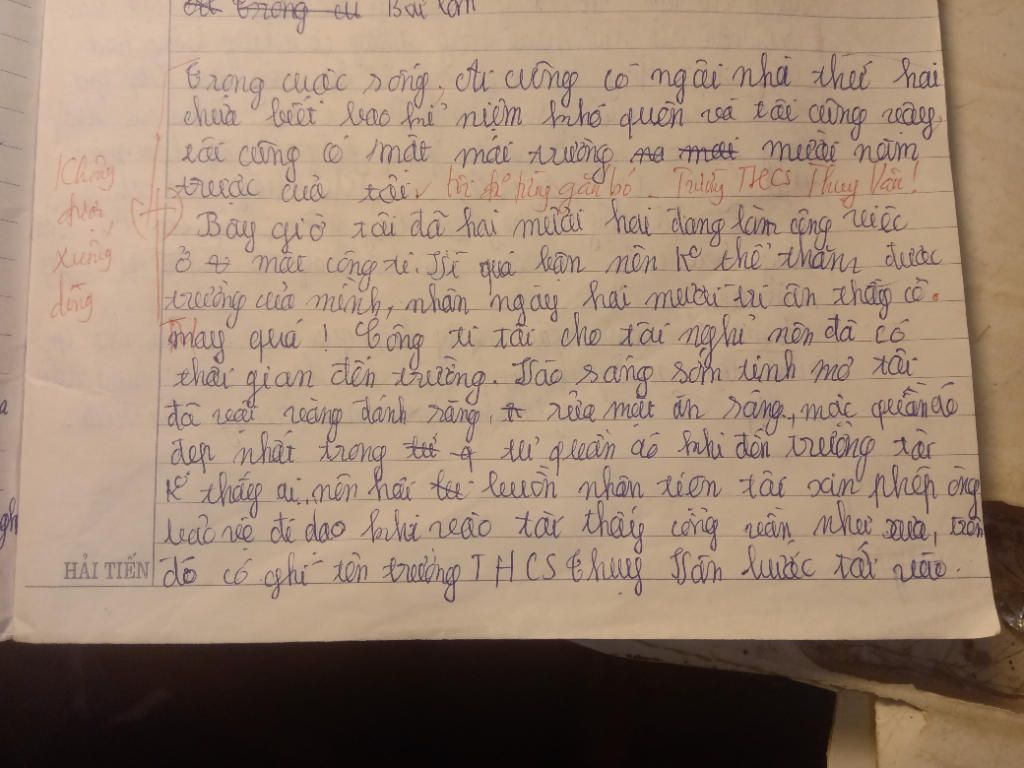 Bài làm
trong cuộc sống, Ai cũng có ngôi nhà thứ hai
chứa biết bao kỉ niệm khó quên và tôi cũng vậy,
tôi cũng có một mái trường mười năm
trước của tôi tôi đã từng gắn bó. Trường THCS Thụy Vân!
Bây giờ tôi đã hai mươi hai đang làm công việc
ở một công ti. Vì quá bận nên K° thể thăm được
trường của mình, nhân ngày hai mươi tri ân thầy cô.
May quá! Công ti tôi cho tôi nghỉ nên đã có
thời gian đến trường. Vào sáng sớm tinh mơ tôi
đã vội vàng đánh răng, rửa mặt ăn sáng, mặc quần áo
đẹp nhất trong tủ quần áo khi đến trường tôi
K° thấy ai, nên hơi buồn nhân tiện tôi xin phép ông
bảo vệ đi dạo khi vào tôi thấy cổng vẫn như xưa, trên
đó có ghi tên trường THCS thụy Vân bước tới vào.
Không
được
xuống
dòng
HẢI TIẾN